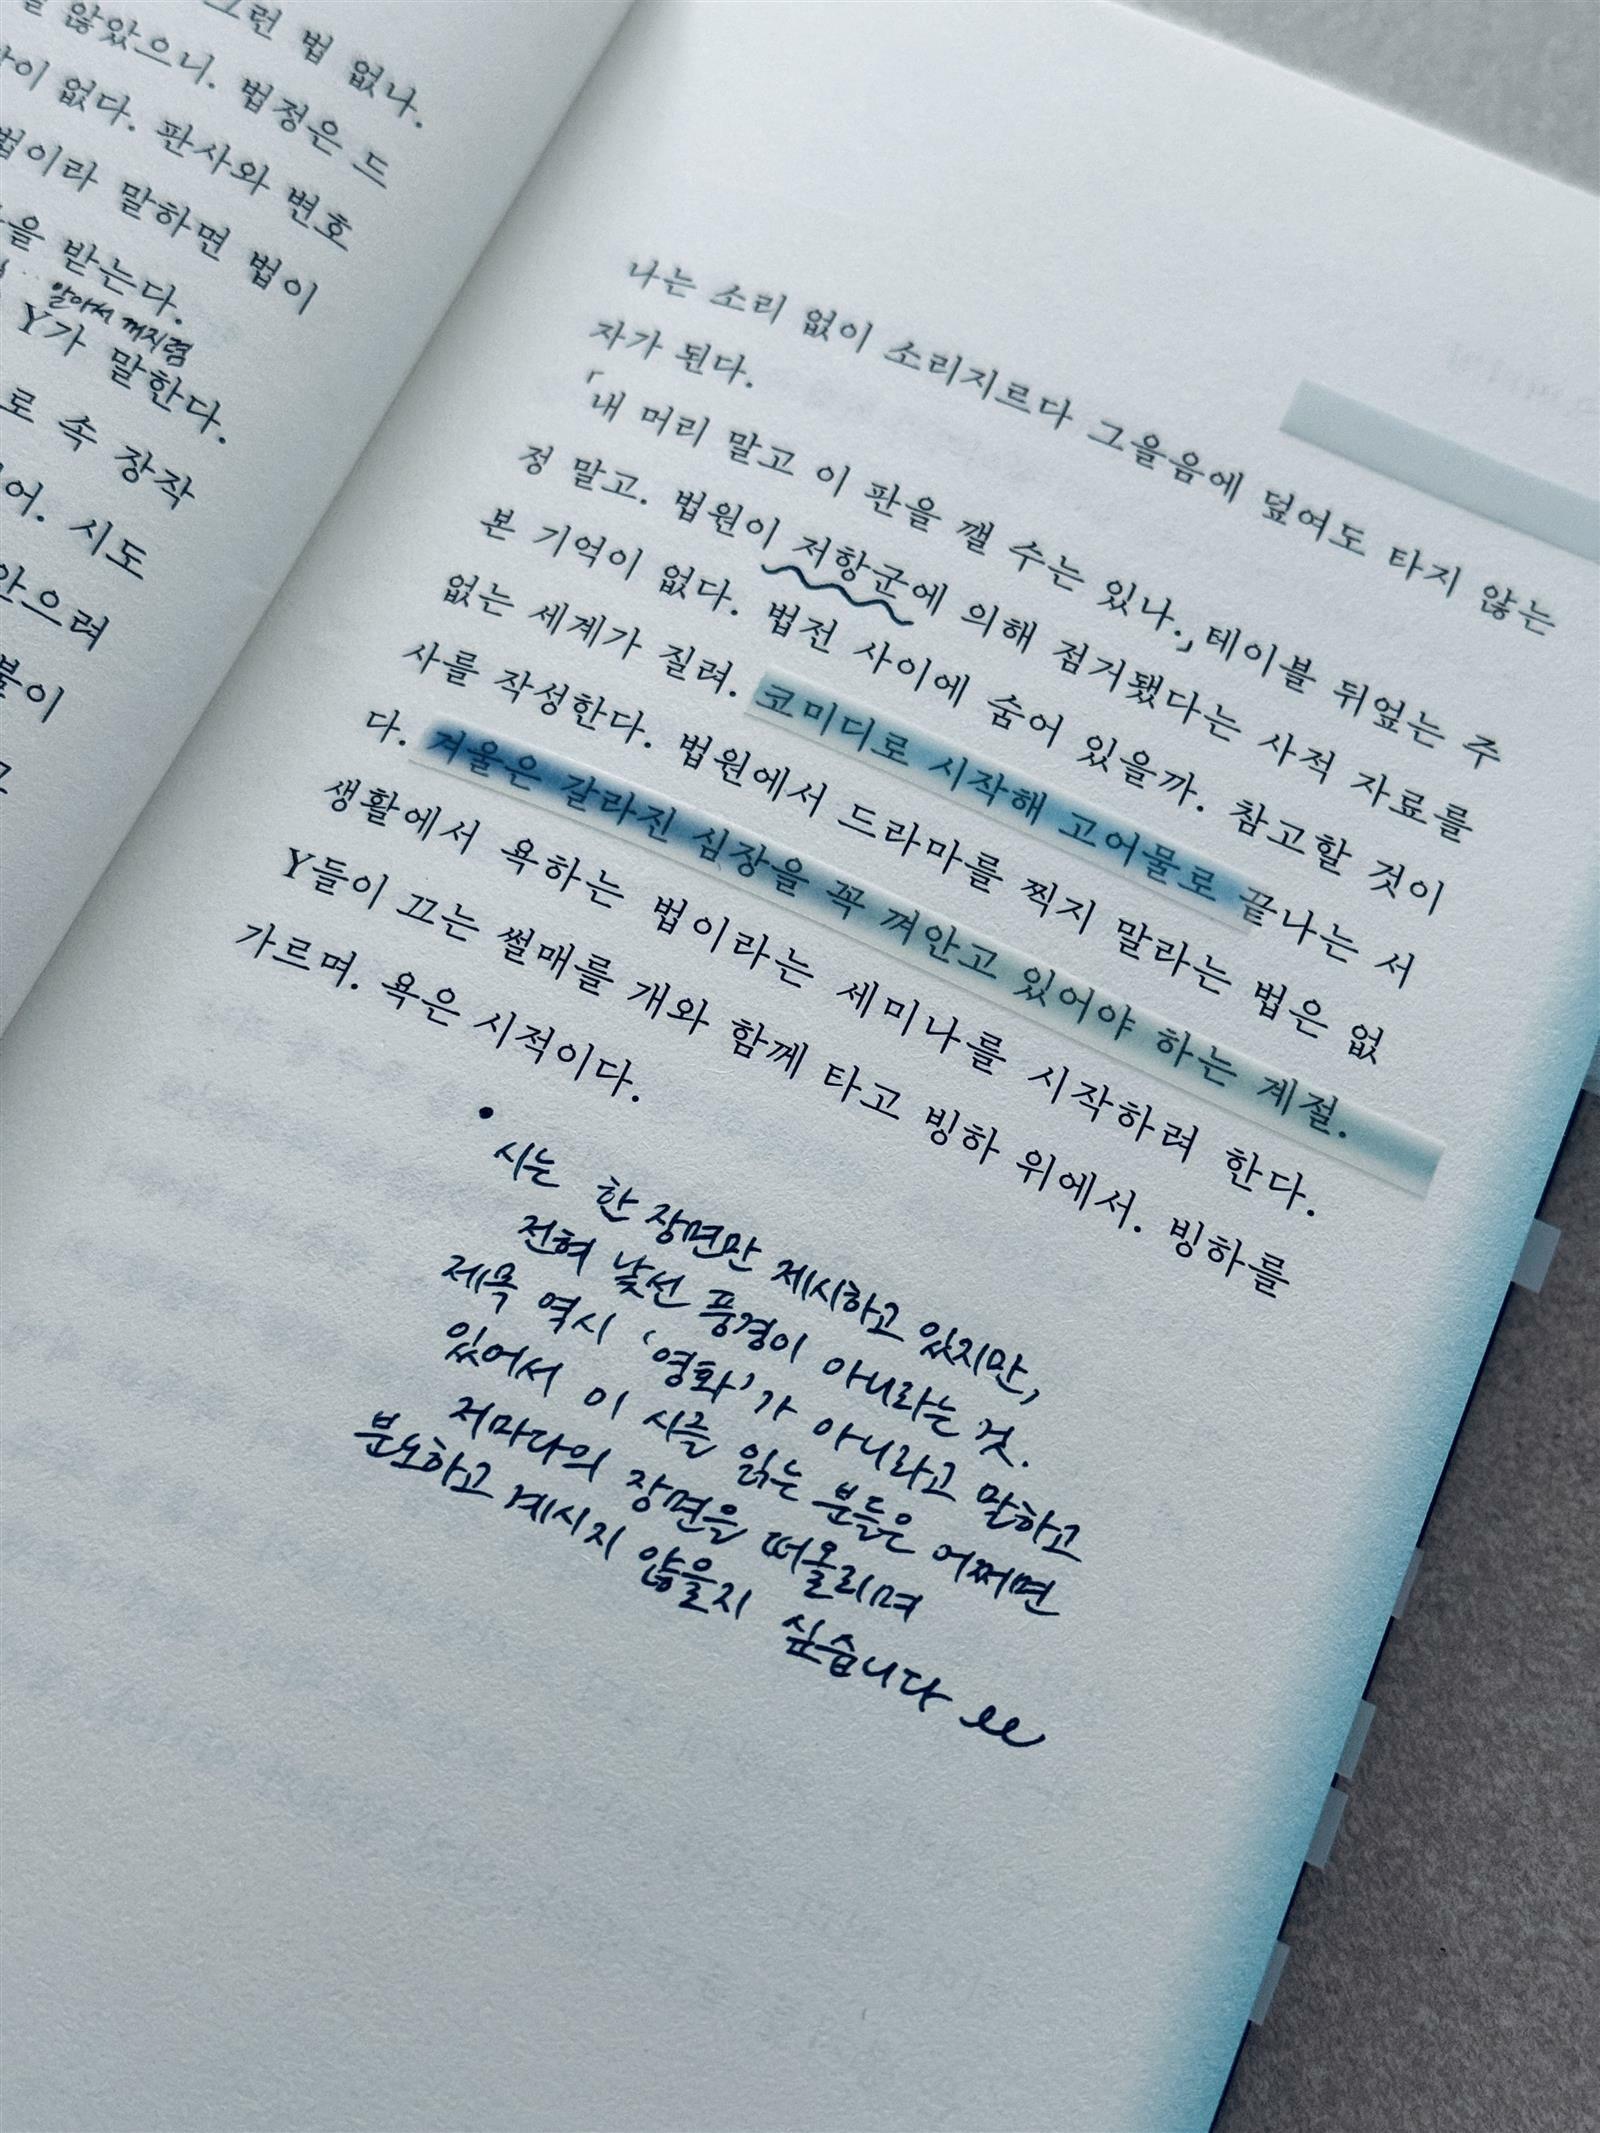 그런 법 없나.
않았으니. 법정은 드
이 없다. 판사와 변호
법이라 말하면 법이
을 받는다.
알아서 꺼지렴
Y가 말한다.
로 속 장작
어. 시도
안으려
불이
나는 소리 없이 소리지르다 그을음에 덮여도 타지 않는
자가 된다.
「내 머리 말고 이 판을 깰 수는 있나.」 테이블 뒤엎는 주
정 말고. 법원이 저항군에 의해 점거됐다는 사적 자료를
본 기억이 없다. 법전 사이에 숨어 있을까. 참고할 것이
없는 세계가 질려. 코미디로 시작해 고어물로 끝나는 서
사를 작성한다. 법원에서 드라마를 찍지 말라는 법은 없
다. 겨울은 갈라진 심장을 꼭 껴안고 있어야 하는 계절.
생활에서 욕하는 법이라는 세미나를 시작하려 한다.
Y들이 끄는 썰매를 개와 함께 타고 빙하 위에서. 빙하를
가르며. 욕은 시적이다.
• 시는 한 장면만 제시하고 있지만,
전혀 낯선 풍경이 아니라는 것.
제목 역시 '영화'가 아니라고 말하고
있어서 이 시를 읽는 분들은 어쩌면
저마다의 장면을 떠올리며
분노하고 계시지 않을지 싶습니다